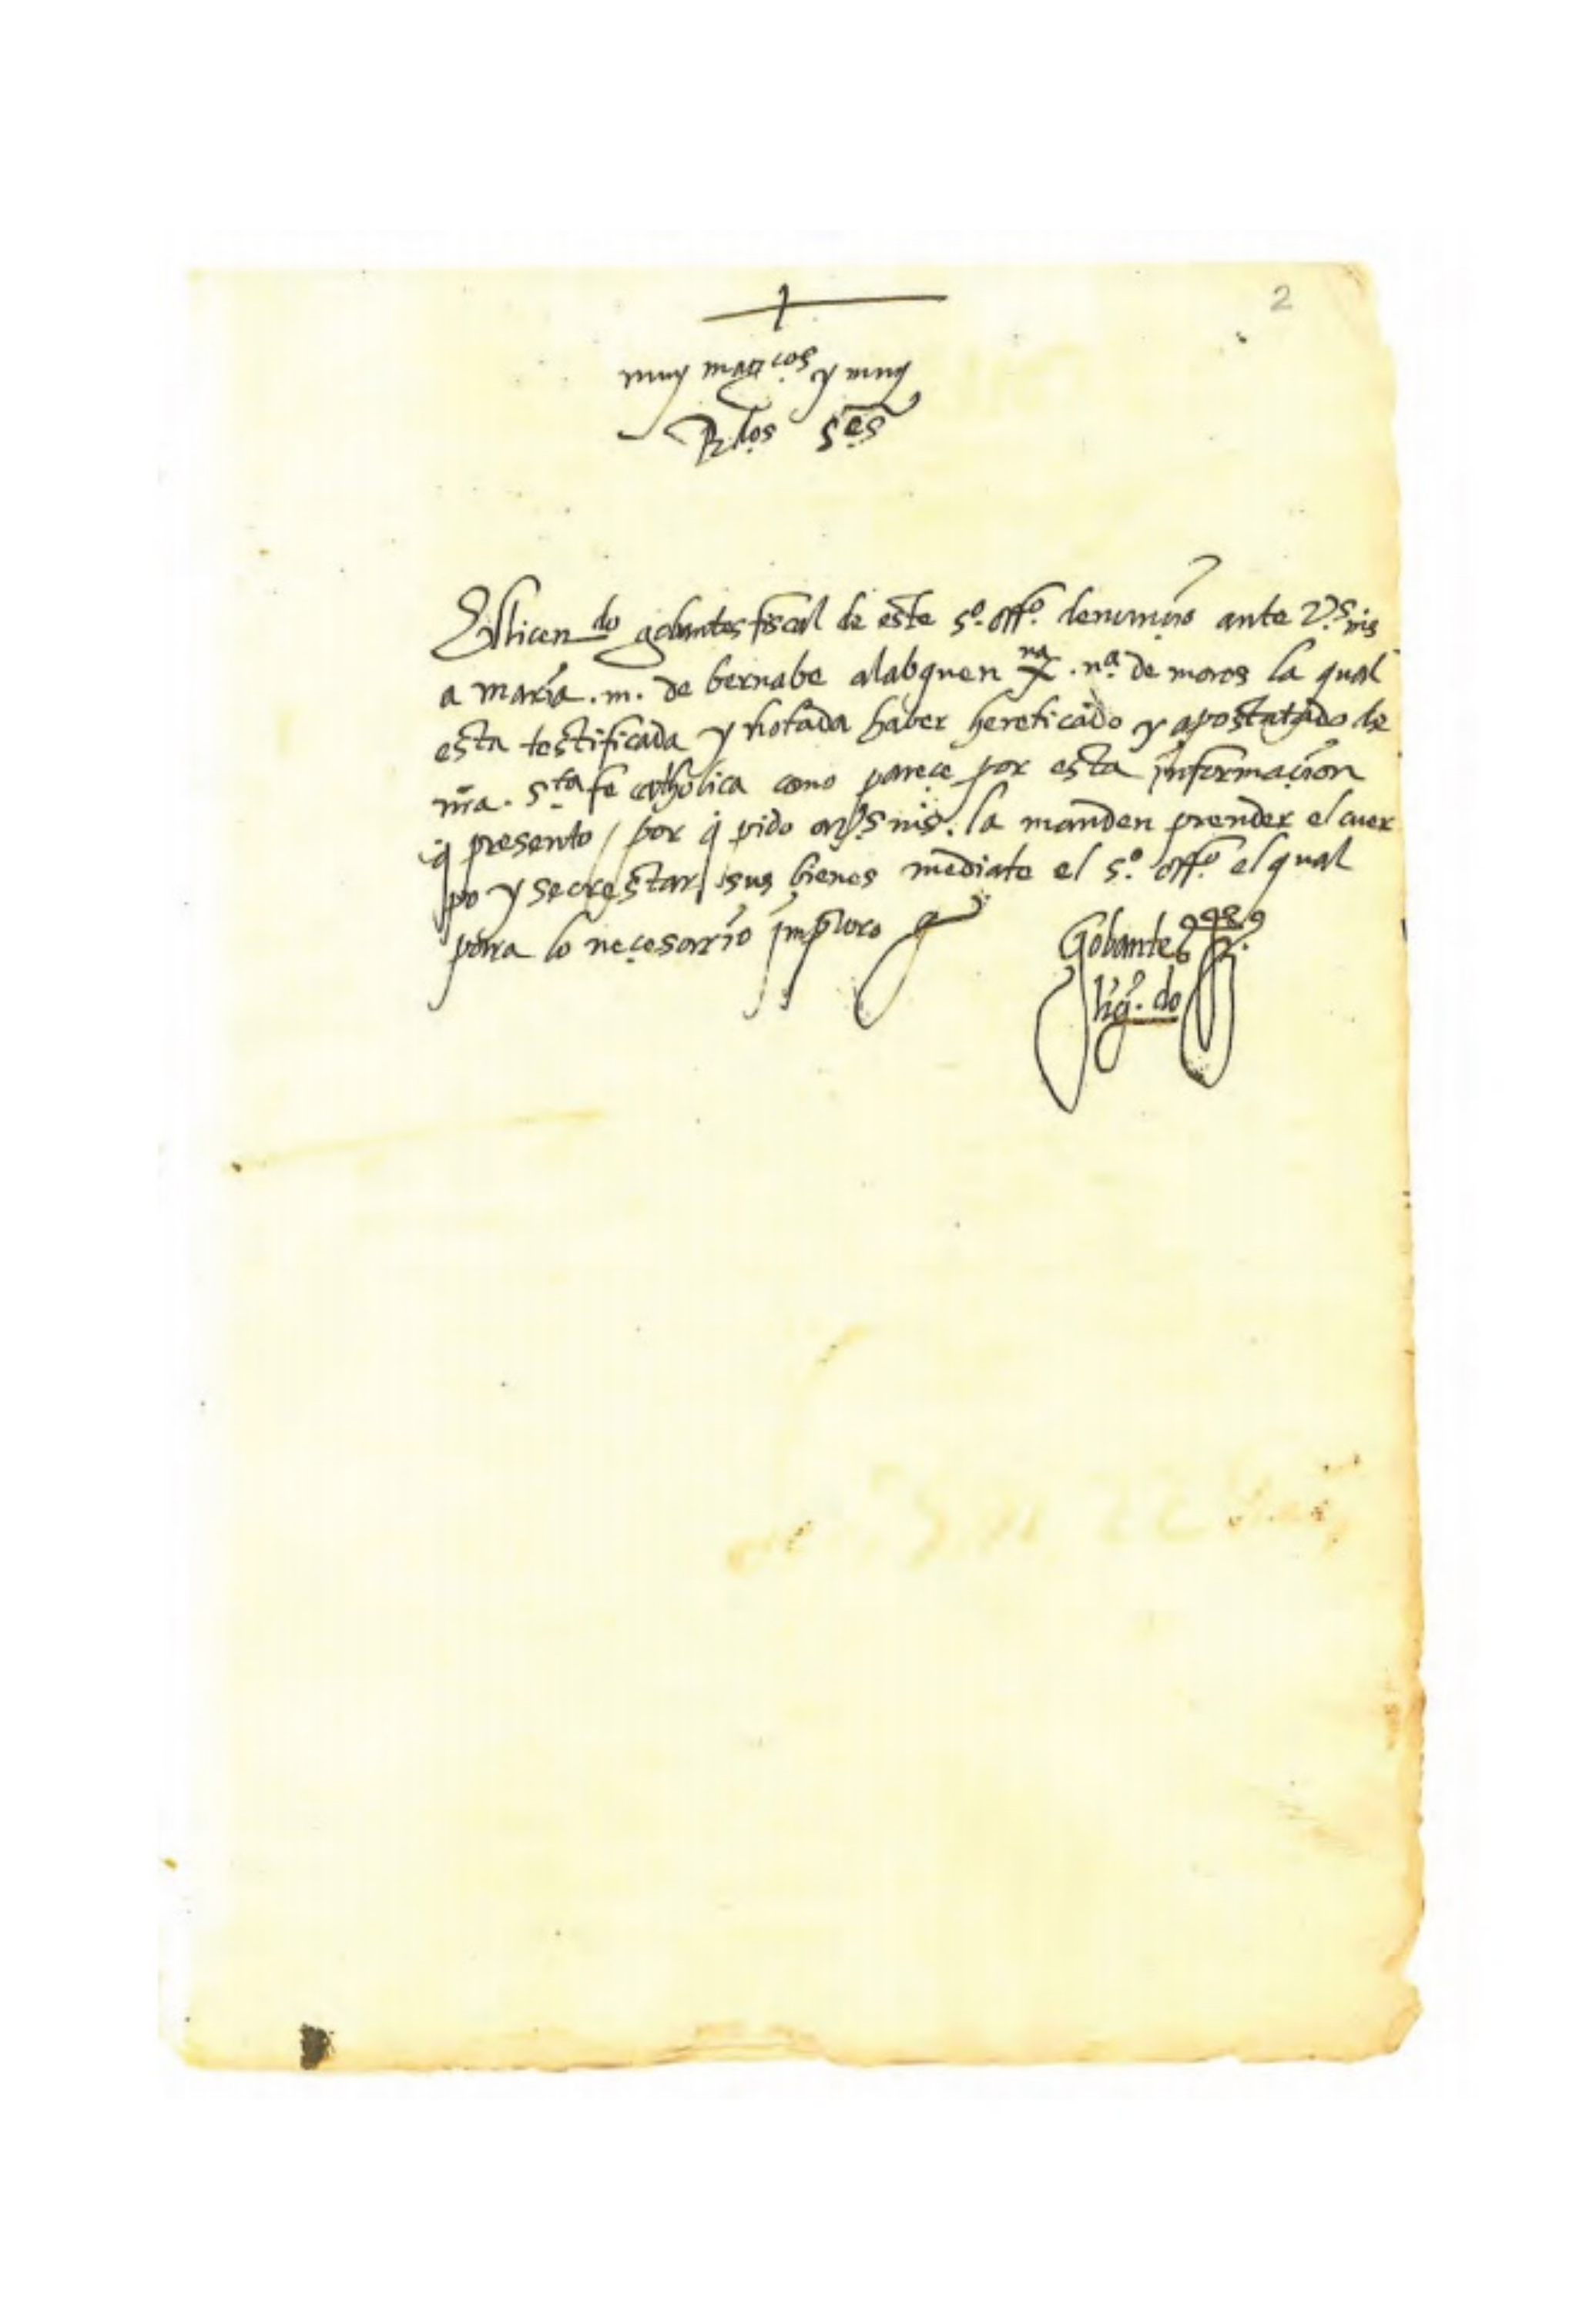 2
muy mag.cos y muy
R.dos S.es
El licen.do gobantes fiscal de este s.o off.o denunçio ante V.s ms
a maria .m. de bernabe alabquen xna .na. de moros la qual
esta testificada y notada haber hereticado y apostatado de
nra. s.ta fe catholica como pareçe por esta informaçion
q presento / por q pido a V.s ms. la manden prender el cuer
po y secrestar sus bienes mediate el s.o off.o el qual
para lo neçesario imploro
Gobantes
liç.do